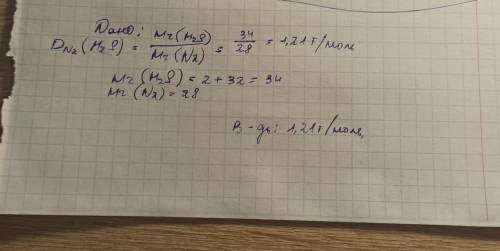 Дано:
D N₂ (H₂S) = Mr(H₂S) / Mr(N₂) = 34 / 28 = 1,21 г/моль
Mr (H₂S) = 2 + 32 = 34
Mr (N₂) = 28
В-дь: 1,21 г/моль